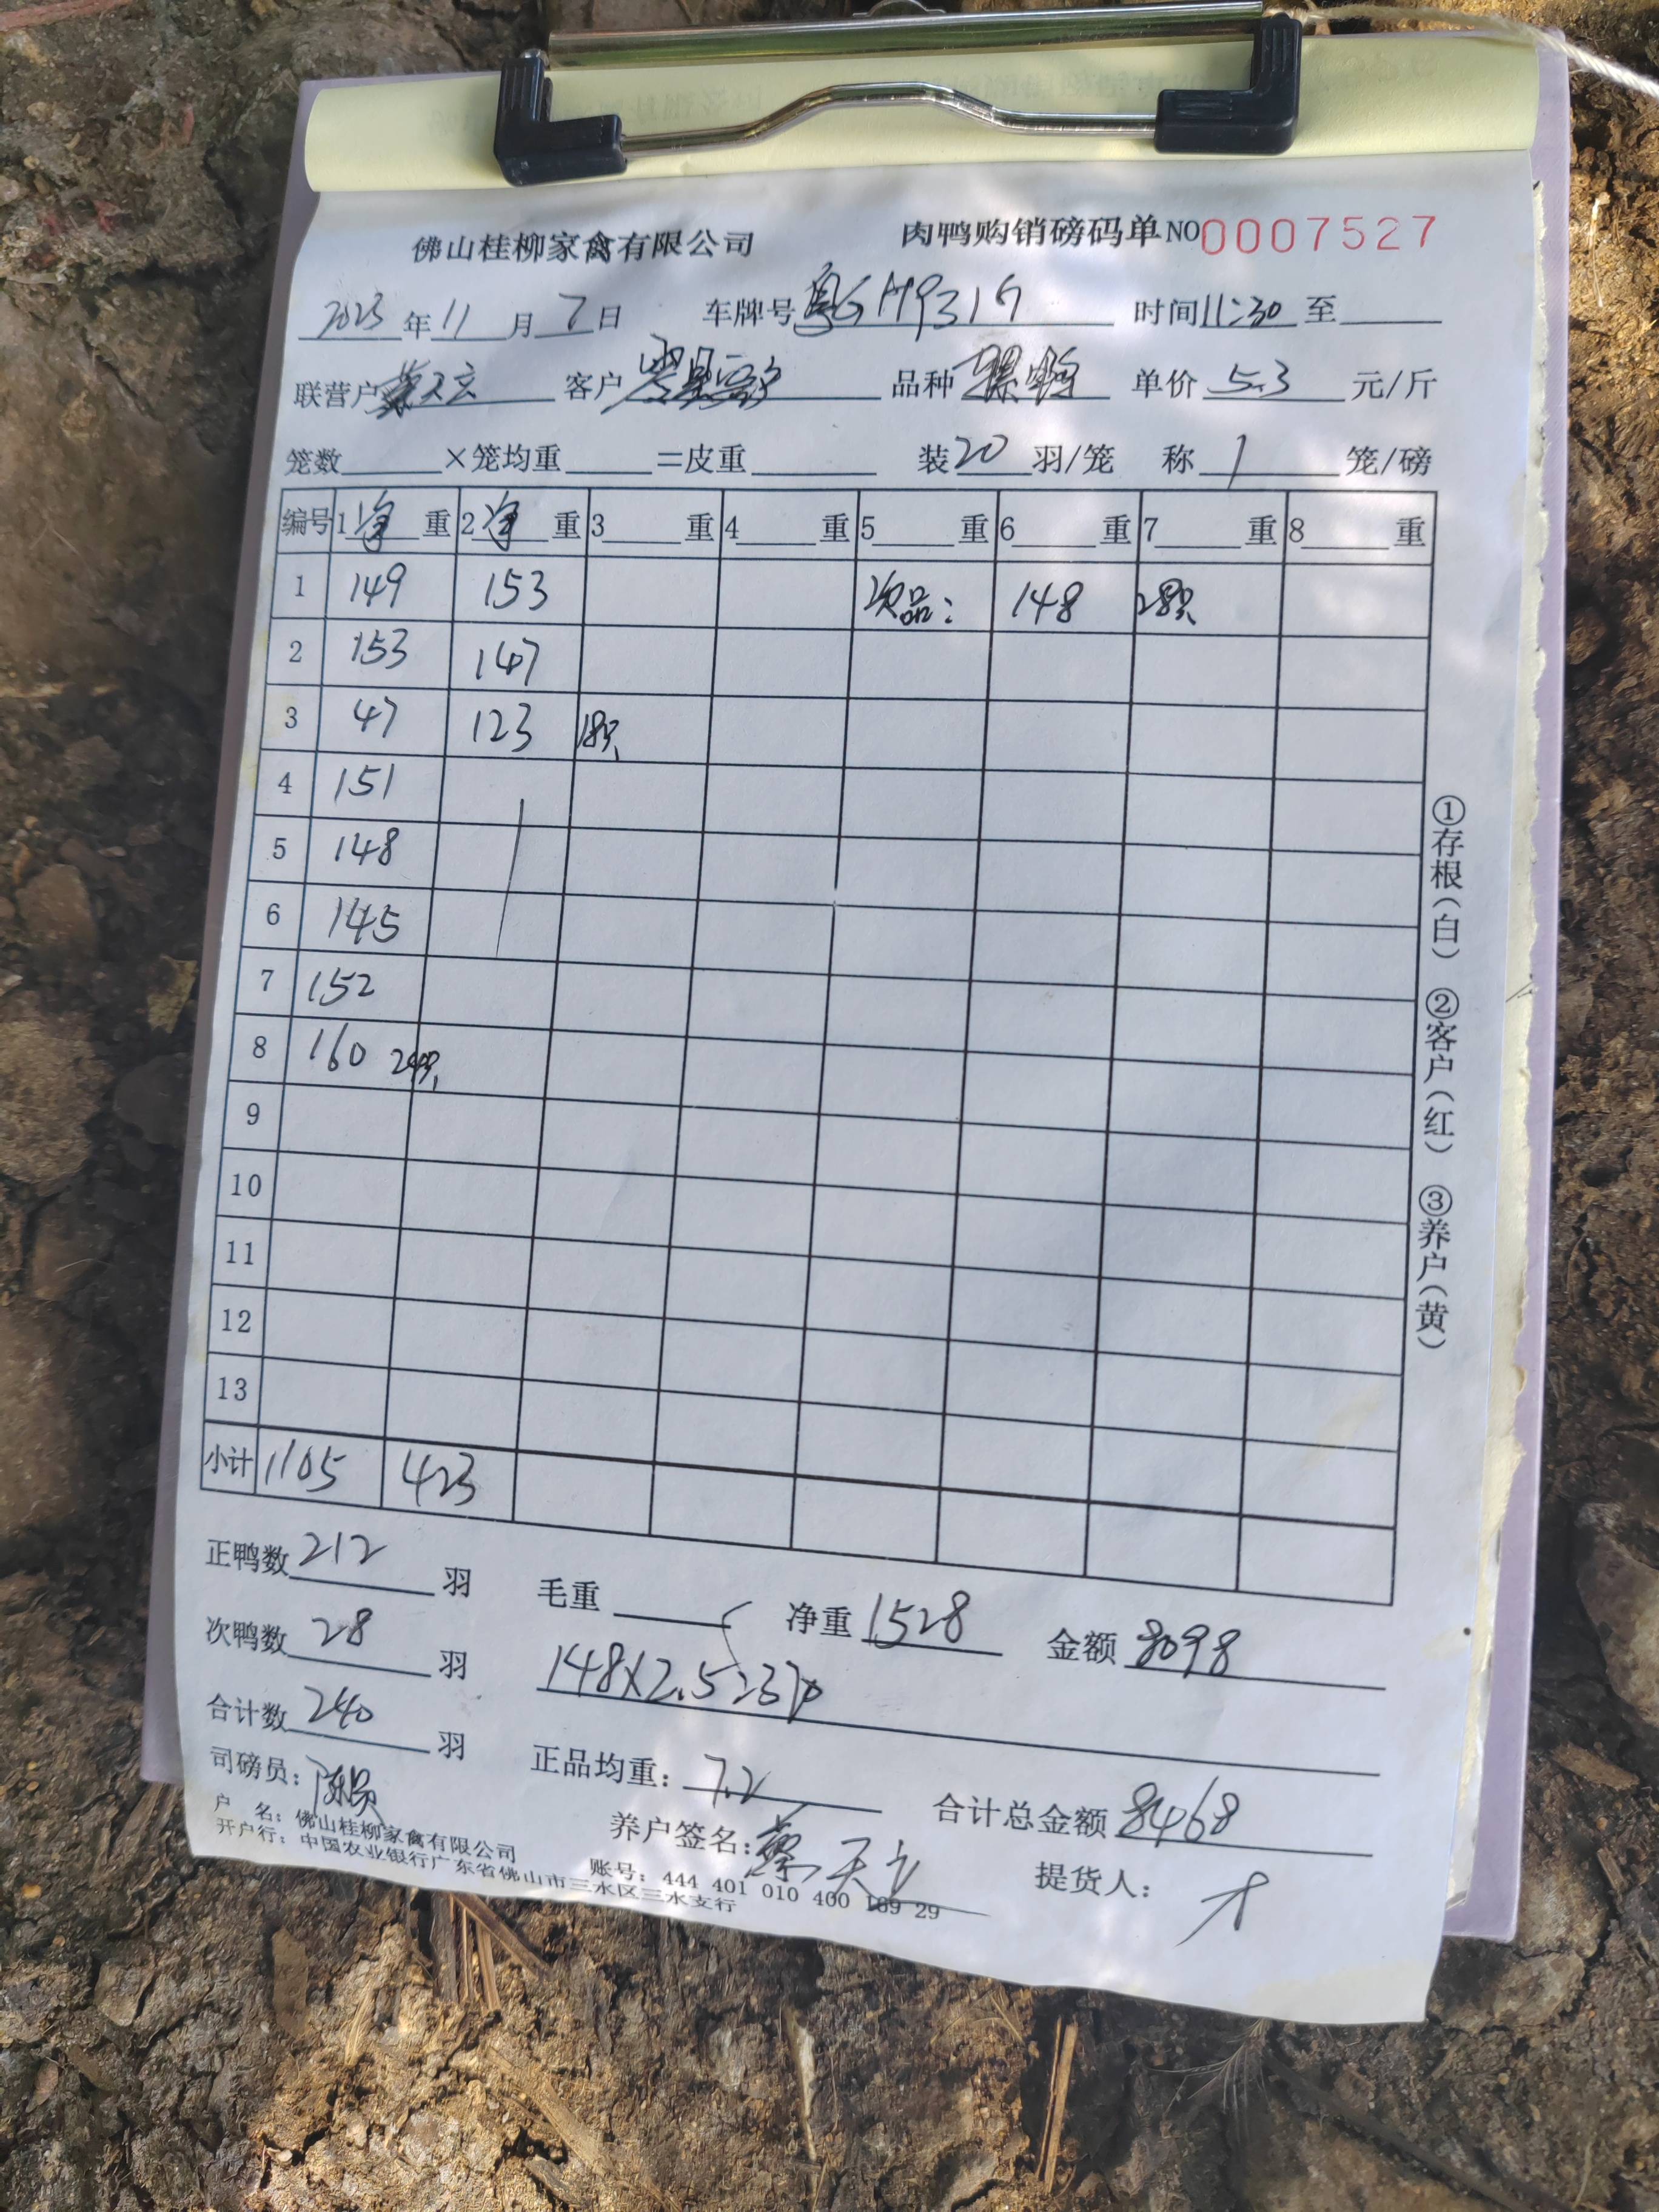 佛山桂柳家禽有限公司 肉鸭购销磅码单 NO 0007527
2023年11月7日 车牌号粤G M931G 时间11:30至
联营户蔡天云 客户 品种 单价5.3元/斤
笼数 ×笼均重 =皮重 装20羽/笼 称1笼/磅
编号 1净重 2净重 3 重 4 重 5 重 6 重 7 重 8 重
1 149 153 次品: 148 28只
2 153 147
3 47 123 18只
4 151
5 148
6 145
7 152
8 160 24只
9
10
11
12
13
小计 1105 423
①存根(白) ②客户(红) ③养户(黄)
正鸭数212羽 毛重 净重1528 金额8098
次鸭数28羽 148×2.5=370
合计数240羽
司磅员: 正品均重:7.2 合计总金额8468
户 名: 佛山桂柳家禽有限公司 养户签名:蔡天云 提货人:
开户行: 中国农业银行广东省佛山市三水区三水支行 账号: 444 401 010 400 169 29